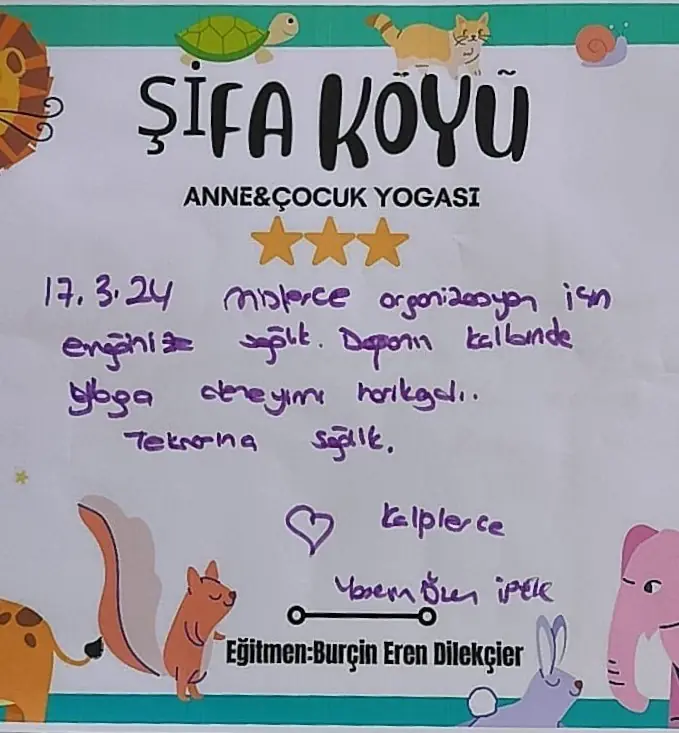 ŞİFA KÖYÜ
ANNE&ÇOCUK YOGASI
17.3.24 mislerce organizasyon için
sağlık. Doğanın kalbinde
yoga deneyimi harikaydı.
Tekrarna sağlık.
Kalplerce
İPEK
Eğitmen:Burçin Eren Dilekçier